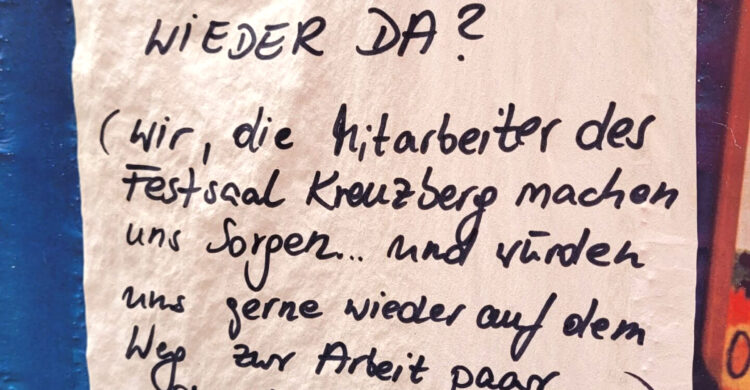 WIEDER DA?
(Wir, die Mitarbeiter des
Festsaal Kreuzberg machen
uns Sorgen... und würden
uns gerne wieder auf dem
Weg zur Arbeit paar